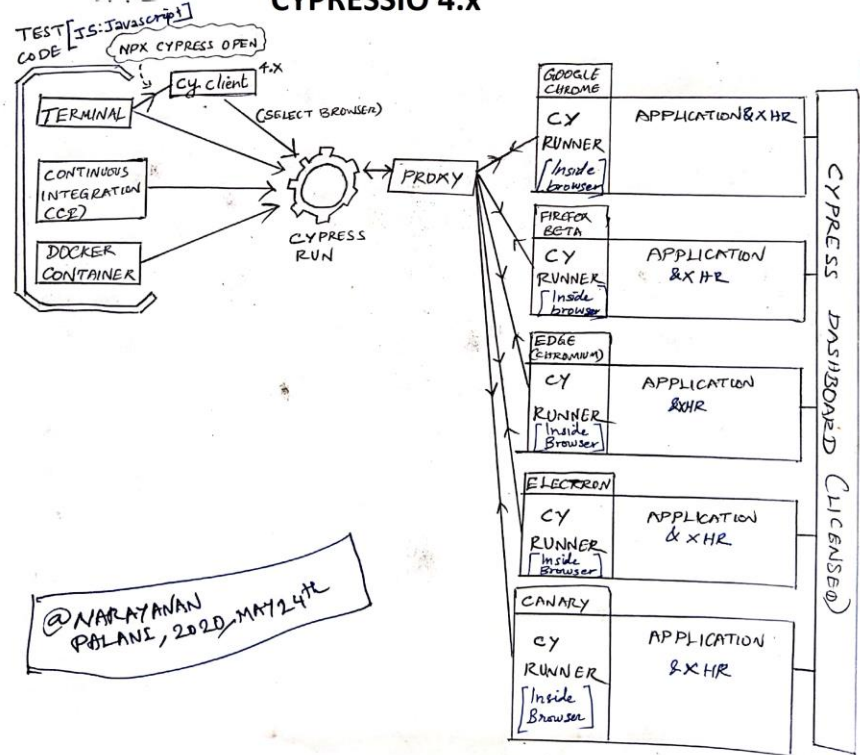 CYPRESSIO 4.x
TEST [JS:Javascript]
CODE
NPX CYPRESS OPEN
Cy client 4.X
TERMINAL
(SELECT BROWSER)
CONTINUOUS
INTEGRATION
(CI)
DOCKER
CONTAINER
CYPRESS
RUN
PROXY
GOOGLE
CHROME
CY
RUNNER
[Inside
browser]
APPLICATION&XHR
FIREFOX
BETA
CY
RUNNER
[Inside
browser]
APPLICATION
&XHR
EDGE
(CHROMIUM)
CY
RUNNER
[Inside
Browser]
APPLICATION
&XHR
ELECTRON
CY
RUNNER
[Inside
Browser]
APPLICATION
& XHR
CANARY
CY
RUNNER
[Inside
Browser]
APPLICATION
&XHR
CYPRESS DASHBOARD (LICENSED)
@NARAYANAN
PALANI, 2020, MAY24th